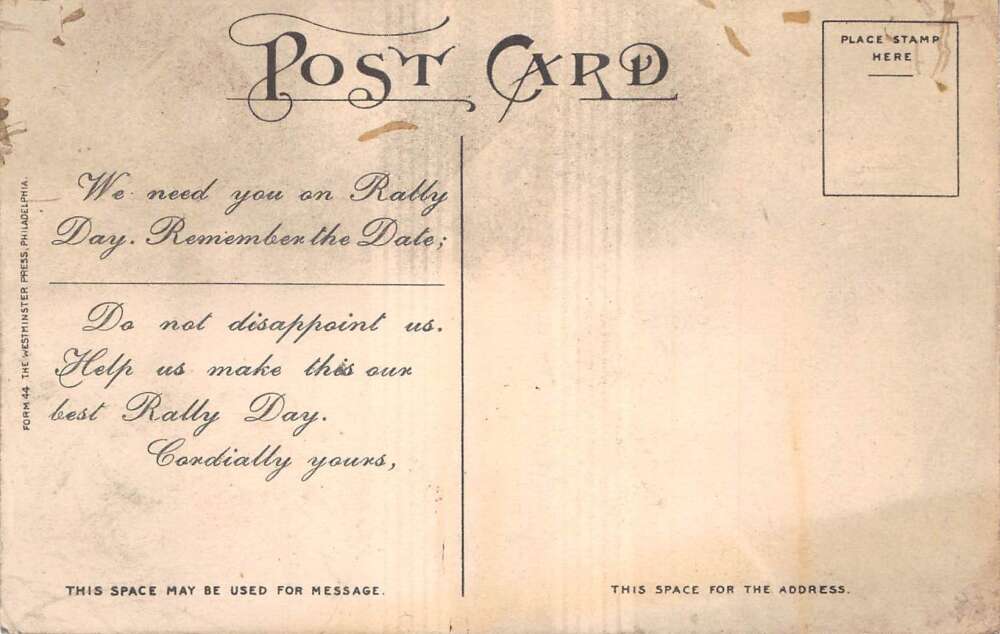 POST CARD
PLACE STAMP
HERE
We need you on Rally
Day. Remember the Date;
Do not disappoint us.
Help us make this our
best Rally Day.
Cordially yours,
FORM 44 THE WESTMINSTER PRESS, PHILADELPHIA.
THIS SPACE MAY BE USED FOR MESSAGE.
THIS SPACE FOR THE ADDRESS.